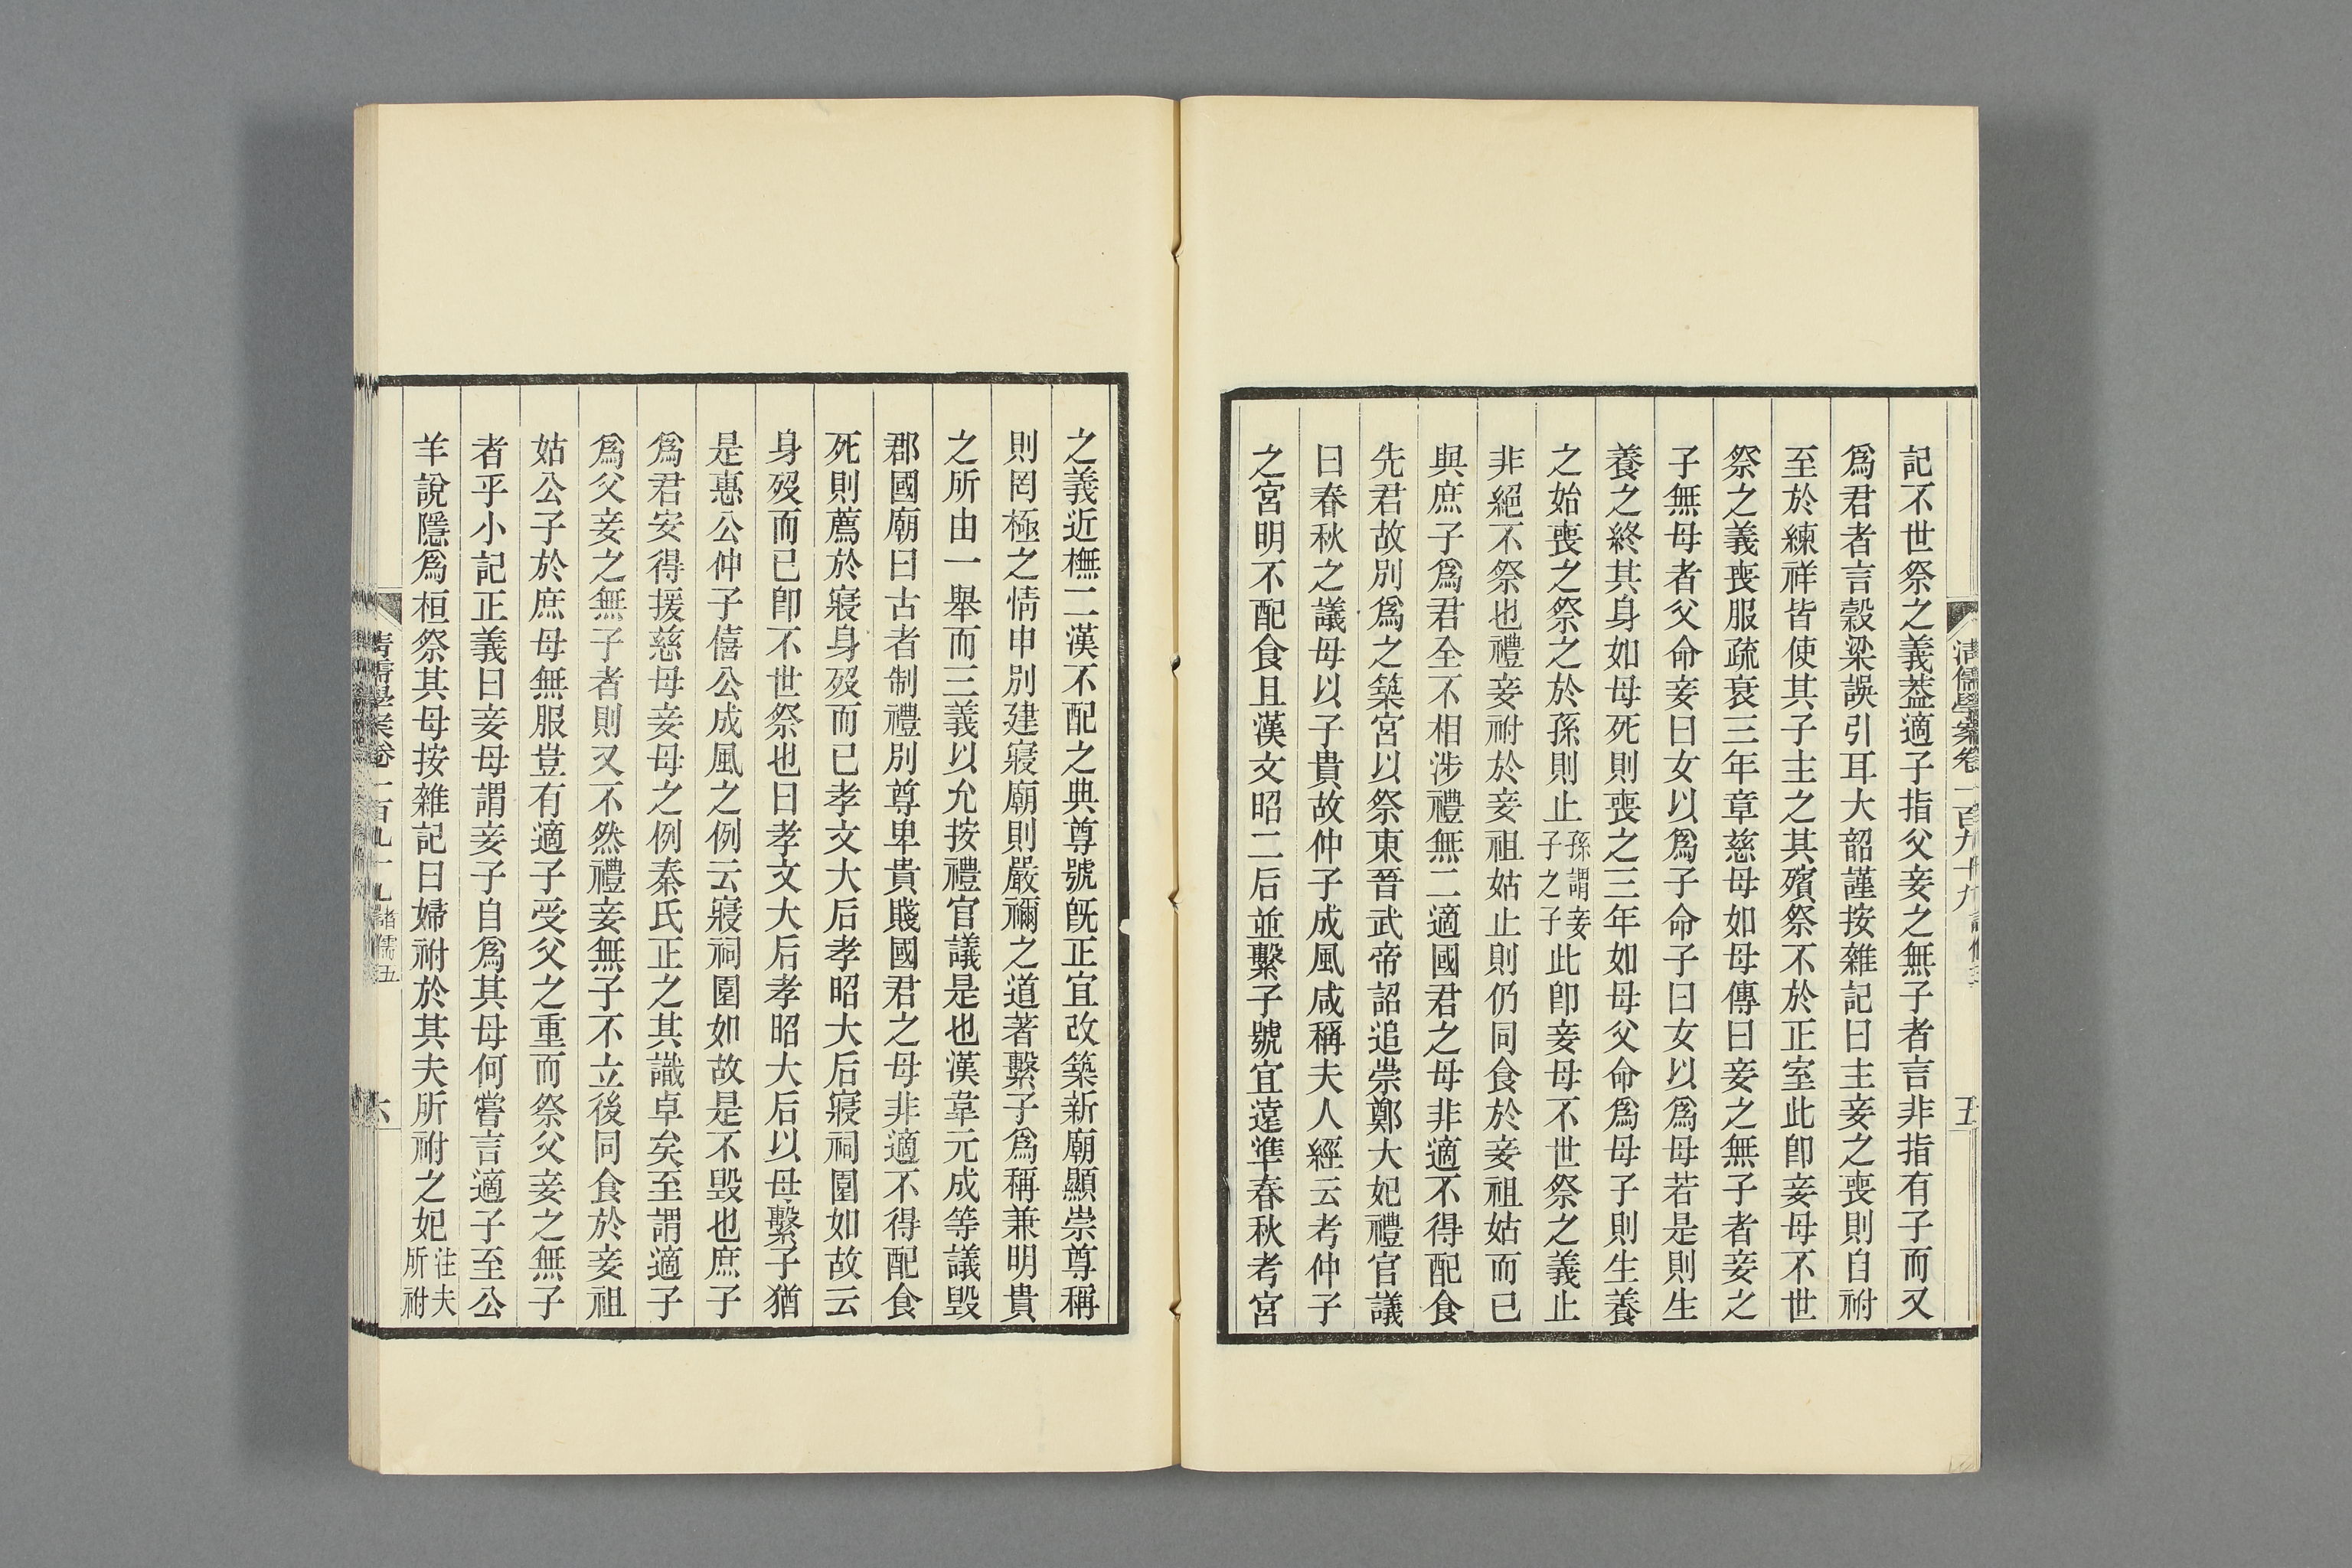 記不世祭之義葢適子指父妾之無子者言非指有子而又
爲君者言糓梁誤引耳大韶謹按雜記曰主妾之喪則自祔
至於練祥皆使其子主之其殯祭不於正室此卽妾母不世
祭之義喪服疏衰三年章慈母如母傳曰妾之無子者妾之
子無母者父命妾曰女以爲子命子曰女以爲母若是則生
養之終其身如母死則喪之三年如母父命爲母子則生養
之始喪之祭之於孫則止孫謂妾子之子此卽妾母不世祭之義止
非絕不祭也禮妾祔於妾祖姑止則仍同食於妾祖姑而已
與庶子爲君全不相涉禮無二適國君之母非適不得配食
先君故別爲之築宮以祭東晉武帝詔追崇鄭大妃禮官議
曰春秋之議母以子貴故仲子成風咸稱夫人經云考仲子
之宮明不配食且漢文昭二后並繫子號宜遠準春秋考宮
之義近橅二漢不配之典尊號旣正宜改築新廟顯崇尊稱
則罔極之情申別建寢廟則嚴禰之道著繫子爲稱兼明貴
之所由一舉而三義以允按禮官議是也漢韋元成等議毀
郡國廟曰古者制禮別尊卑貴賤國君之母非適不得配食
死則薦於寢身歿而已孝文大后孝昭大后寢祠園如故云
身歿而已卽不世祭也曰孝文大后孝昭大后以母繫子猶
是惠公仲子僖公成風之例云寢祠園如故是不毀也庶子
爲君安得援慈母妾母之例秦氏正之其識卓矣至謂適子
爲父妾之無子者則又不然禮妾無子不立後同食於妾祖
姑公子於庶母無服豈有適子受父之重而祭父妾之無子
者乎小記正義曰妾母謂妾子自爲其母何嘗言適子至公
羊說隱爲桓祭其母按雜記曰婦祔於其夫所祔之妃注夫所祔
清儒學案卷一百九十九 諸儒五
六
清儒學案卷一百九十九
五